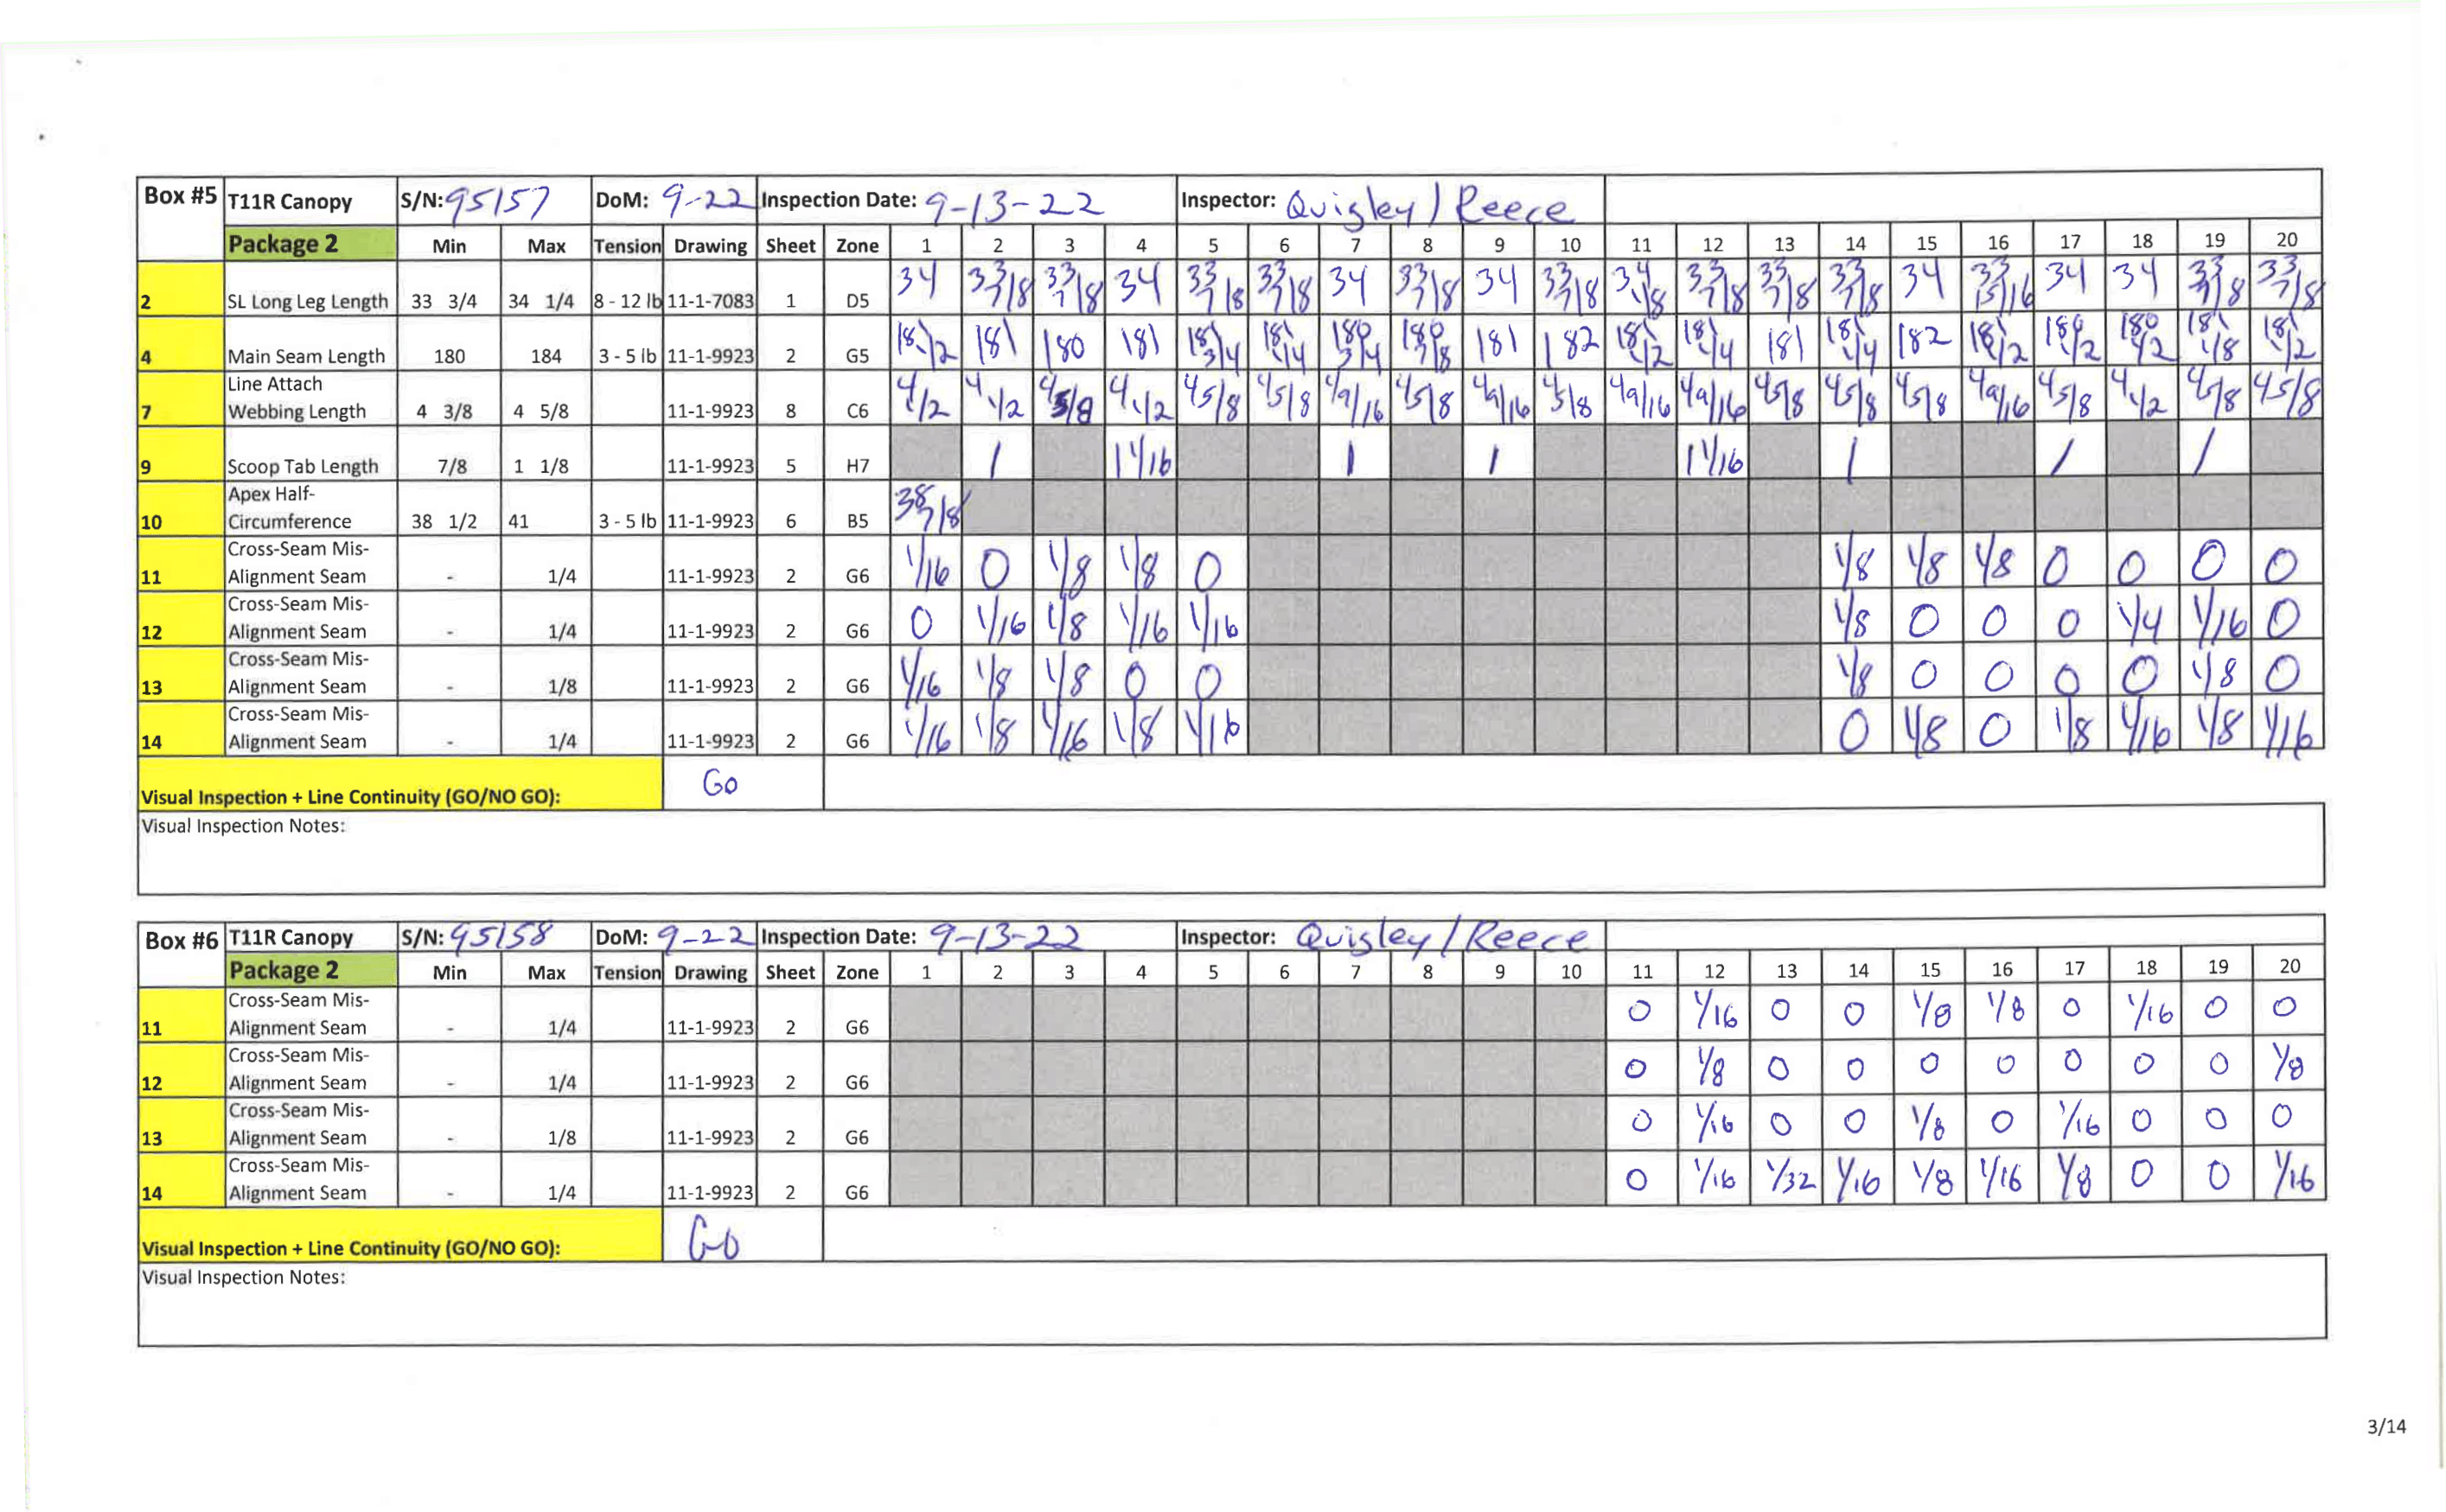 Box #5 T11R Canopy S/N: 95157 DoM: 9-22 Inspection Date: 9-13-22 Inspector: Quigley/Reece
Package 2 Min Max Tension Drawing Sheet Zone 1 2 3 4 5 6 7 8 9 10 11 12 13 14 15 16 17 18 19 20
2 SL Long Leg Length 33 3/4 34 1/4 8 - 12 lb 11-1-7083 1 D5 34 33 7/8 33 7/8 34 33 7/8 33 7/8 34 33 7/8 34 33 7/8 34 1/8 33 7/8 33 7/8 33 7/8 34 33 15/16 34 34 33 7/8 33 7/8
4 Main Seam Length 180 184 3 - 5 lb 11-1-9923 2 G5 181 1/2 181 180 181 181 3/4 181 1/4 180 3/4 180 7/8 181 182 181 1/2 181 1/4 181 181 1/4 182 181 1/2 180 1/2 180 1/2 181 1/8 181 1/2
7 Line Attach Webbing Length 4 3/8 4 5/8 11-1-9923 8 C6 4 1/2 4 1/2 4 5/8 4 1/2 4 5/8 4 5/8 4 9/16 4 5/8 4 9/16 4 5/8 4 9/16 4 9/16 4 5/8 4 5/8 4 5/8 4 9/16 4 5/8 4 1/2 4 5/8 4 5/8
9 Scoop Tab Length 7/8 1 1/8 11-1-9923 5 H7 1 1 1/16 1 1 1 1/16 1 1 1
10 Apex Half-Circumference 38 1/2 41 3 - 5 lb 11-1-9923 6 B5 38 7/8
11 Cross-Seam Mis-Alignment Seam - 1/4 11-1-9923 2 G6 1/16 0 1/8 1/8 0 1/8 1/8 1/8 0 0 0 0
12 Cross-Seam Mis-Alignment Seam - 1/4 11-1-9923 2 G6 0 1/16 1/8 1/16 1/16 1/8 0 0 0 1/4 1/16 0
13 Cross-Seam Mis-Alignment Seam - 1/8 11-1-9923 2 G6 1/16 1/8 1/8 0 0 1/8 0 0 0 0 1/8 0
14 Cross-Seam Mis-Alignment Seam - 1/4 11-1-9923 2 G6 1/16 1/8 1/16 1/8 1/16 0 1/8 0 1/8 1/16 1/8 1/16
Visual Inspection + Line Continuity (GO/NO GO): Go
Visual Inspection Notes:
Box #6 T11R Canopy S/N: 95158 DoM: 9-22 Inspection Date: 9-13-22 Inspector: Quigley/Reece
Package 2 Min Max Tension Drawing Sheet Zone 1 2 3 4 5 6 7 8 9 10 11 12 13 14 15 16 17 18 19 20
11 Cross-Seam Mis-Alignment Seam - 1/4 11-1-9923 2 G6 0 1/16 0 0 1/8 1/8 0 1/16 0 0
12 Cross-Seam Mis-Alignment Seam - 1/4 11-1-9923 2 G6 0 1/8 0 0 0 0 0 0 0 1/8
13 Cross-Seam Mis-Alignment Seam - 1/8 11-1-9923 2 G6 0 1/16 0 0 1/8 0 1/16 0 0 0
14 Cross-Seam Mis-Alignment Seam - 1/4 11-1-9923 2 G6 0 1/16 1/32 1/16 1/8 1/16 1/8 0 0 1/16
Visual Inspection + Line Continuity (GO/NO GO): GO
Visual Inspection Notes:
3/14